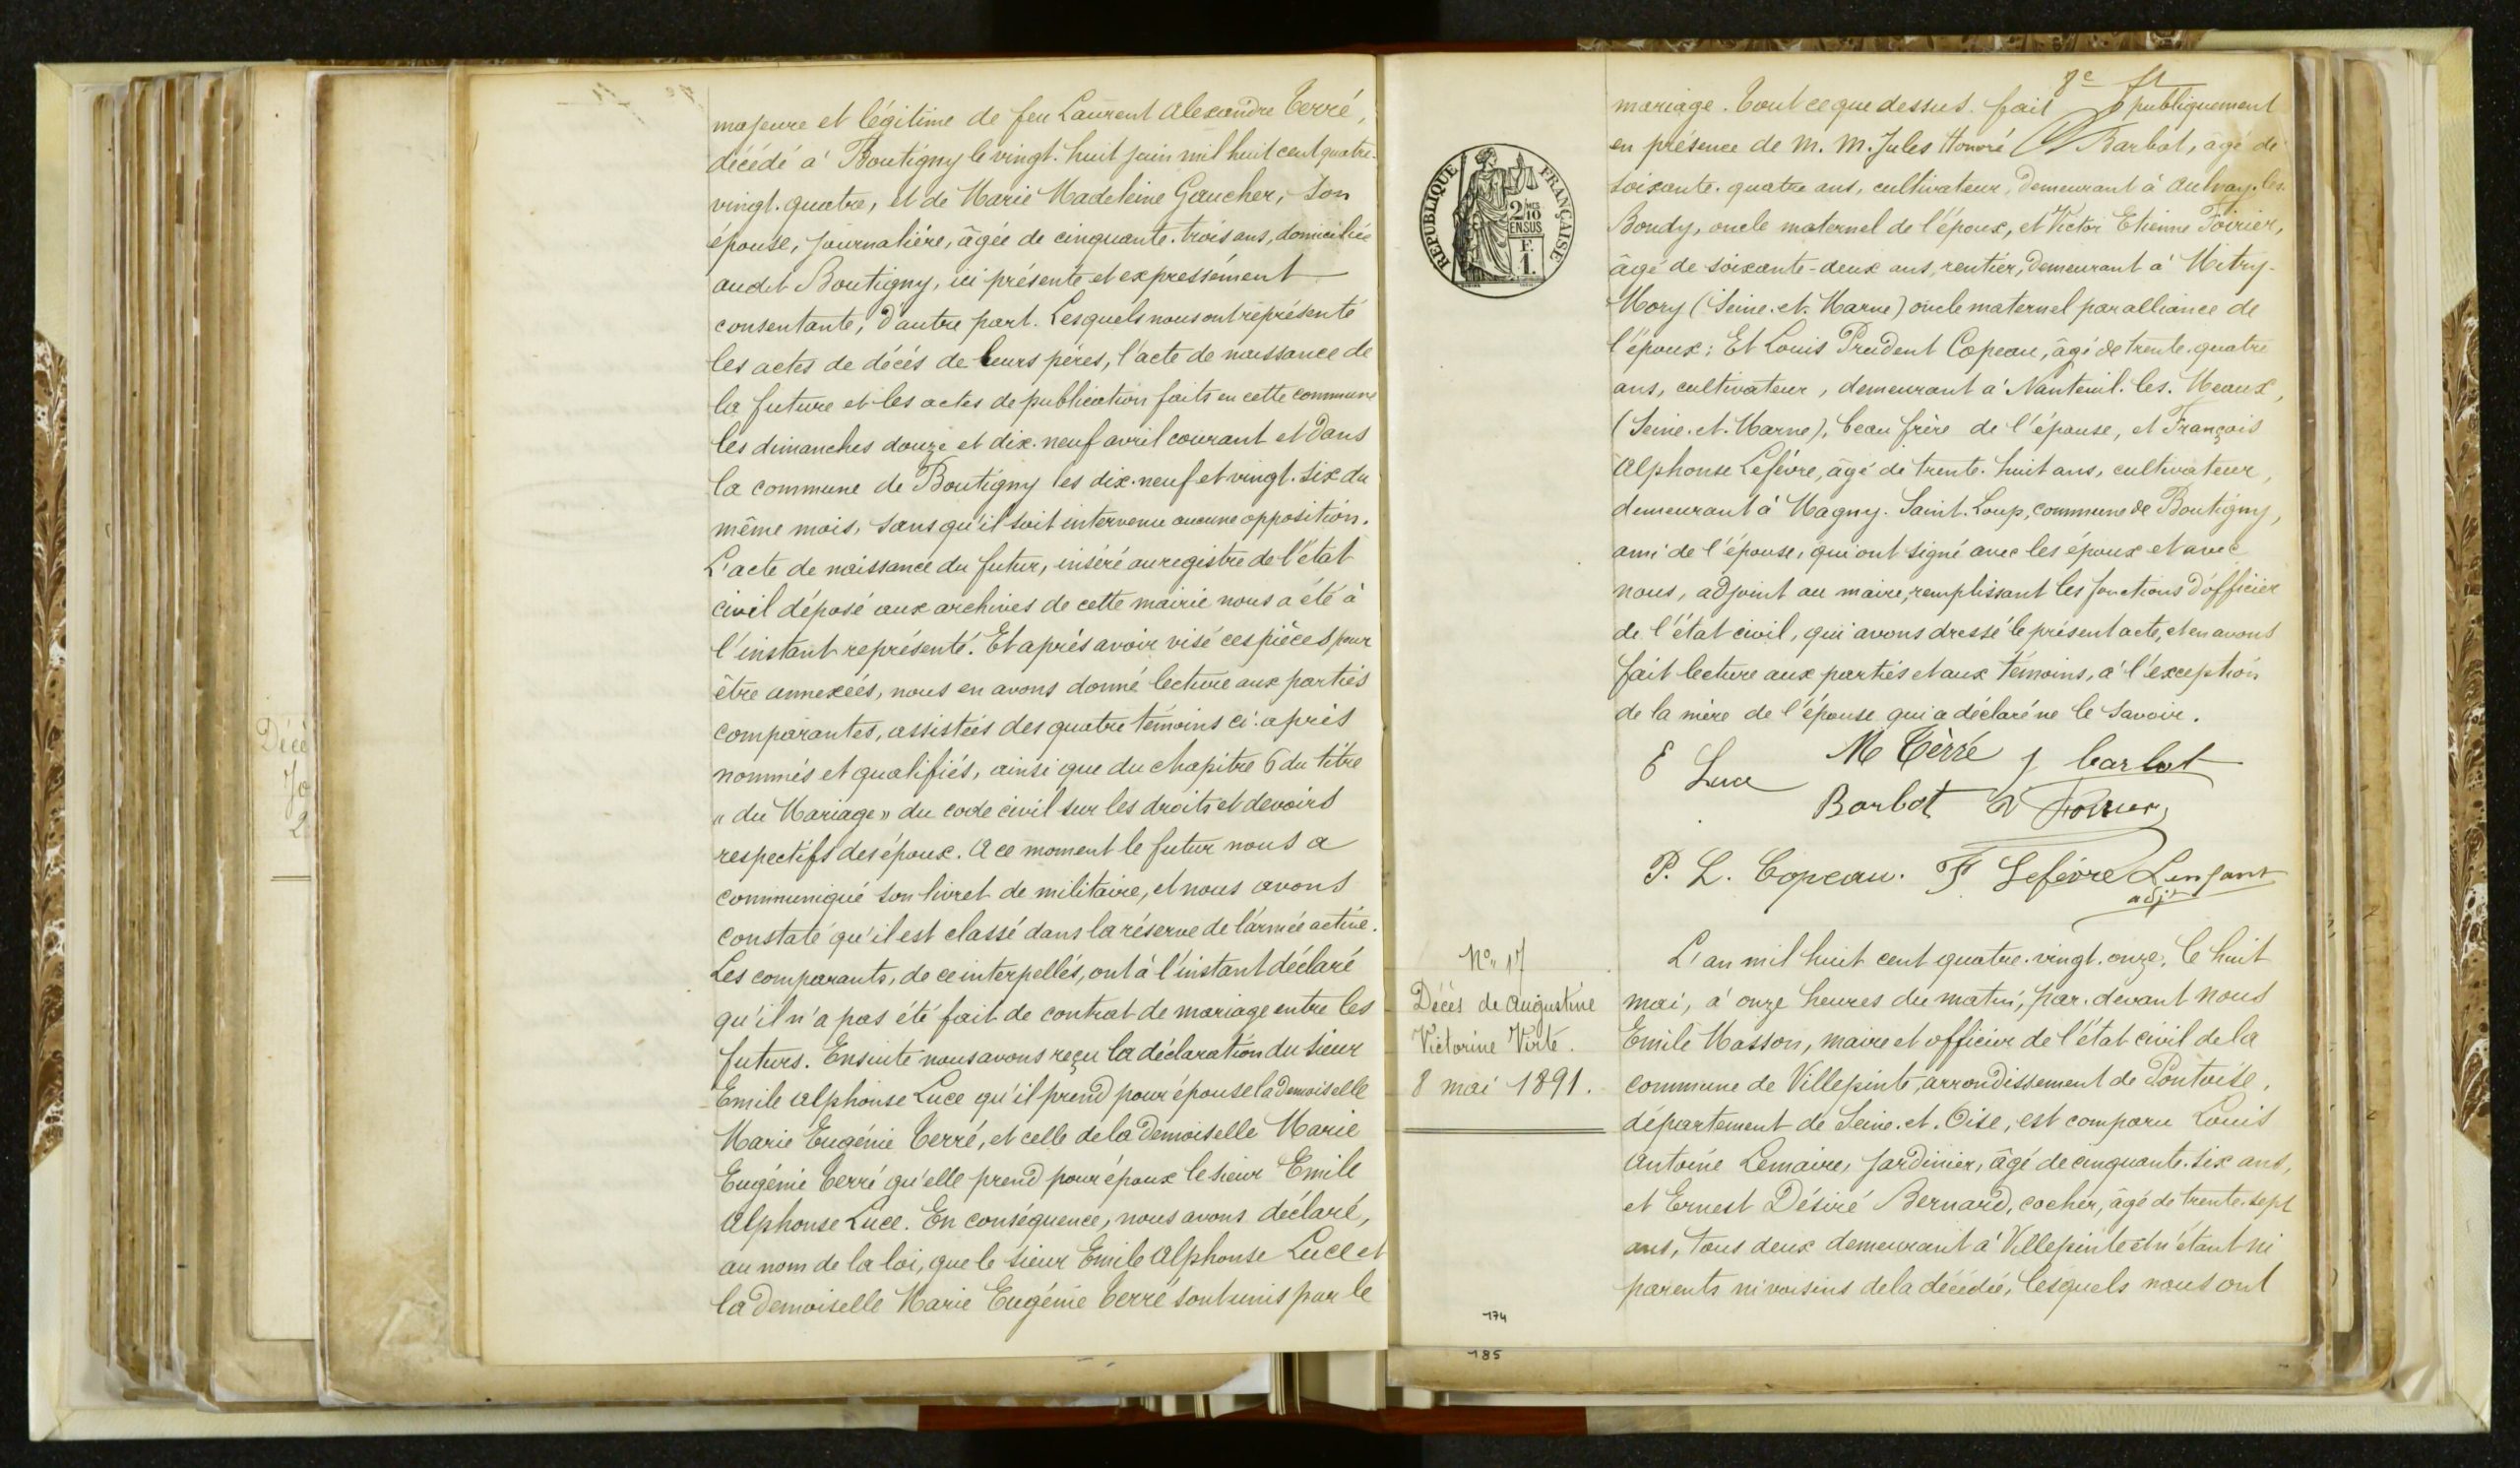 majeure et légitime de feu Laurent Alexandre Terré,
décédé à Boutigny le vingt-huit juin mil huit cent quatre-
vingt-quatre, et de Marie Madeleine Gaucher, son
épouse, journalière, âgée de cinquante-trois ans, domiciliée
audit Boutigny, ici présente et expressément
consentante, d'autre part. Lesquels nous ont représenté
les actes de décès de leurs pères, l'acte de naissance de
la future et les actes de publication faits en cette commune
les dimanches douze et dix-neuf avril courant et dans
la commune de Boutigny les dix-neuf et vingt-six du
même mois, sans qu'il soit intervenu aucune opposition.
L'acte de naissance du futur, inséré au registre de l'état
civil déposé aux archives de cette mairie nous a été à
l'instant représenté. Et après avoir visé ces pièces pour
être annexées, nous en avons donné lecture aux parties
comparantes, assistées des quatre témoins ci-après
nommés et qualifiés, ainsi que du chapitre 6 du titre
« du Mariage » du code civil sur les droits et devoirs
respectifs des époux. A ce moment le futur nous a
communiqué son livret de militaire, et nous avons
constaté qu'il est classé dans la réserve de l'armée active.
Les comparants, de ce interpellés, ont à l'instant déclaré
qu'il n'a pas été fait de contrat de mariage entre les
futurs. Ensuite nous avons reçu la déclaration du sieur
Emile Alphonse Luce qu'il prend pour épouse la demoiselle
Marie Eugénie Terré, et celle de la demoiselle Marie
Eugénie Terré qu'elle prend pour époux le sieur Emile
Alphonse Luce. En conséquence, nous avons déclaré,
au nom de la loi, que le sieur Emile Alphonse Luce et
la demoiselle Marie Eugénie Terré sont unis par le
Décè
Jo
2
8e ft
mariage. Tout ce que dessus fait publiquement
en présence de M. M. Jules Honoré Barbot, âgé de
soixante-quatre ans, cultivateur, demeurant à Aulnay-les-
Bondy, oncle maternel de l'époux, et Victor Etienne Poirier,
âgé de soixante-deux ans, rentier, demeurant à Mitry-
Mory (Seine-et-Marne) oncle maternel par alliance de
l'époux; Et Louis Prudent Copeau, âgé de trente-quatre
ans, cultivateur, demeurant à Nanteuil-les-Meaux,
(Seine-et-Marne), beau frère de l'épouse, et François
Alphonse Lefèvre, âgé de trente-huit ans, cultivateur,
demeurant à Magny-Saint-Loup, commune de Boutigny,
ami de l'épouse, qui ont signé avec les époux et avec
nous, adjoint au maire, remplissant les fonctions d'officier
de l'état civil, qui avons dressé le présent acte, et en avons
fait lecture aux parties et aux témoins, à l'exception
de la mère de l'épouse qui a déclaré ne le savoir.
E Luce M Terré J barbot
Barbot V Poirier
P. L. Copeau. F Lefèvre Lenfant
adjt
RÉPUBLIQUE FRANÇAISE
2/10 MES
EN SUS
F.
1.
No 17
Décès de Augustine
Victorine Virte.
8 mai 1891.
L'an mil huit cent quatre-vingt-onze, le huit
mai, à onze heures du matin, par-devant nous
Emile Masson, maire et officier de l'état civil de la
commune de Villepinte, arrondissement de Pontoise,
département de Seine-et-Oise, est comparu Louis
Antoine Lemaire, jardinier, âgé de cinquante-six ans,
et Ernest Désiré Bernard, cocher, âgé de trente-sept
ans, tous deux demeurant à Villepinte et n'étant ni
parents ni voisins de la décédée, lesquels nous ont
174
185